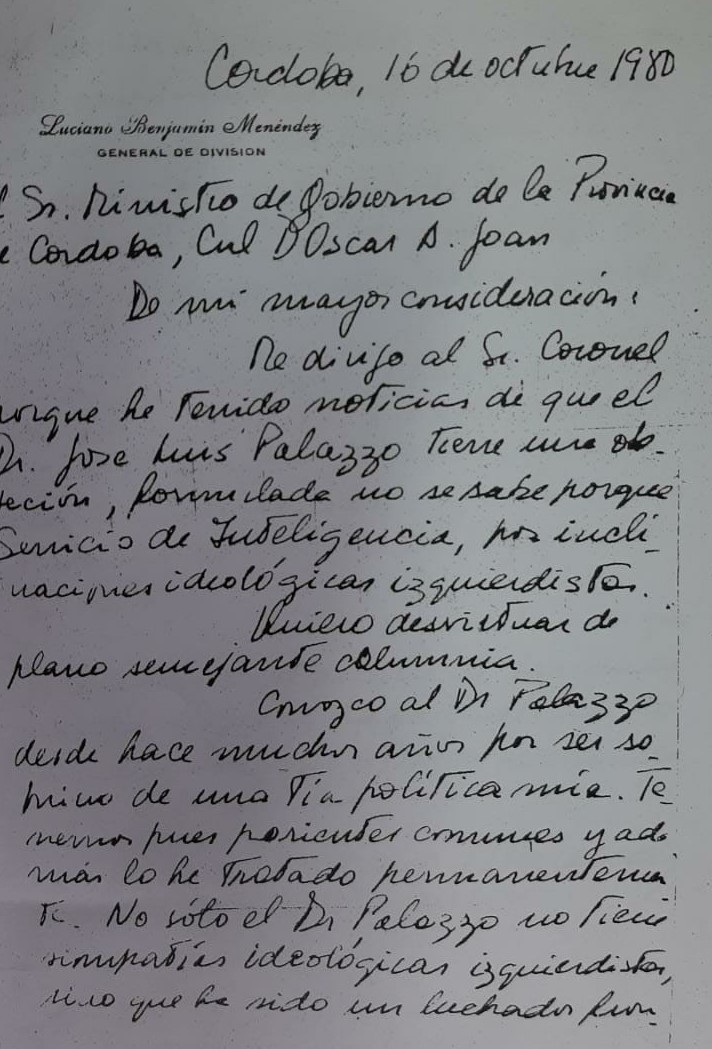 Cordoba, 16 de octubre 1980
Luciano Benjamín Menéndez
GENERAL DE DIVISION
l Sr. Ministro de Gobierno de la Provincia
e Cordoba, Cnl D Oscar A. Joan
De mi mayor consideración:
Me dirijo al Sr. Coronel
orque he tenido noticias de que el
Dr. Jose Luis Palazzo tiene una ob-
jeción, formulada no se sabe porque
Servicio de Inteligencia, por incli-
naciones ideológicas izquierdistas.
Quiero desvirtuar de
plano semejante calumnia.
Conozco al Dr Palazzo
desde hace muchos años por ser so-
brino de una tía política mía. Te-
nemos pues parientes comunes y ade
más lo he tratado permanentemen
te. No sólo el Dr Palazzo no tiene
simpatías ideológicas izquierdistas,
sino que ha sido un luchador fron-